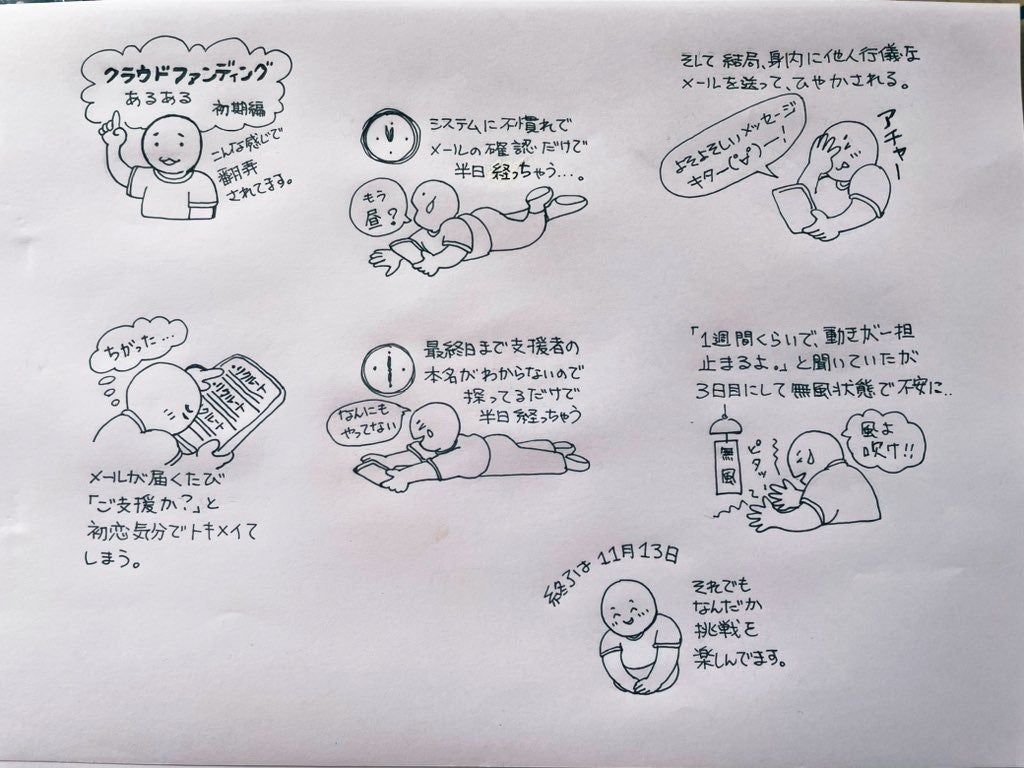 クラウドファンディング
あるある
初期編
こんな感じで
翻弄
されてます。
メールが届くたび
「ご支援か?」と
初恋気分でトキメイて
しまう。
ちがった…
ツクルート
ツクルート
ツクルート
システムに不慣れで
メールの確認だけで
半日経っちゃう…。
もう
昼?
最終日まで支援者の
本名がわからないので
探ってるだけで
半日経っちゃう
なんにも
やってない
そして結局、身内に他人行儀な
メールを送って、ひやかされる。
よそよそしいメッセージ
キター(°∀°)ー!
アチャー
「1週間くらいで、動きが一担
止まるよ。」と聞いていたが
3日目にして無風状態で不安に..
無風
ピタッ
風よ
吹け!!
終了は11月13日
それでも
なんだか
挑戦を
楽しんでます。